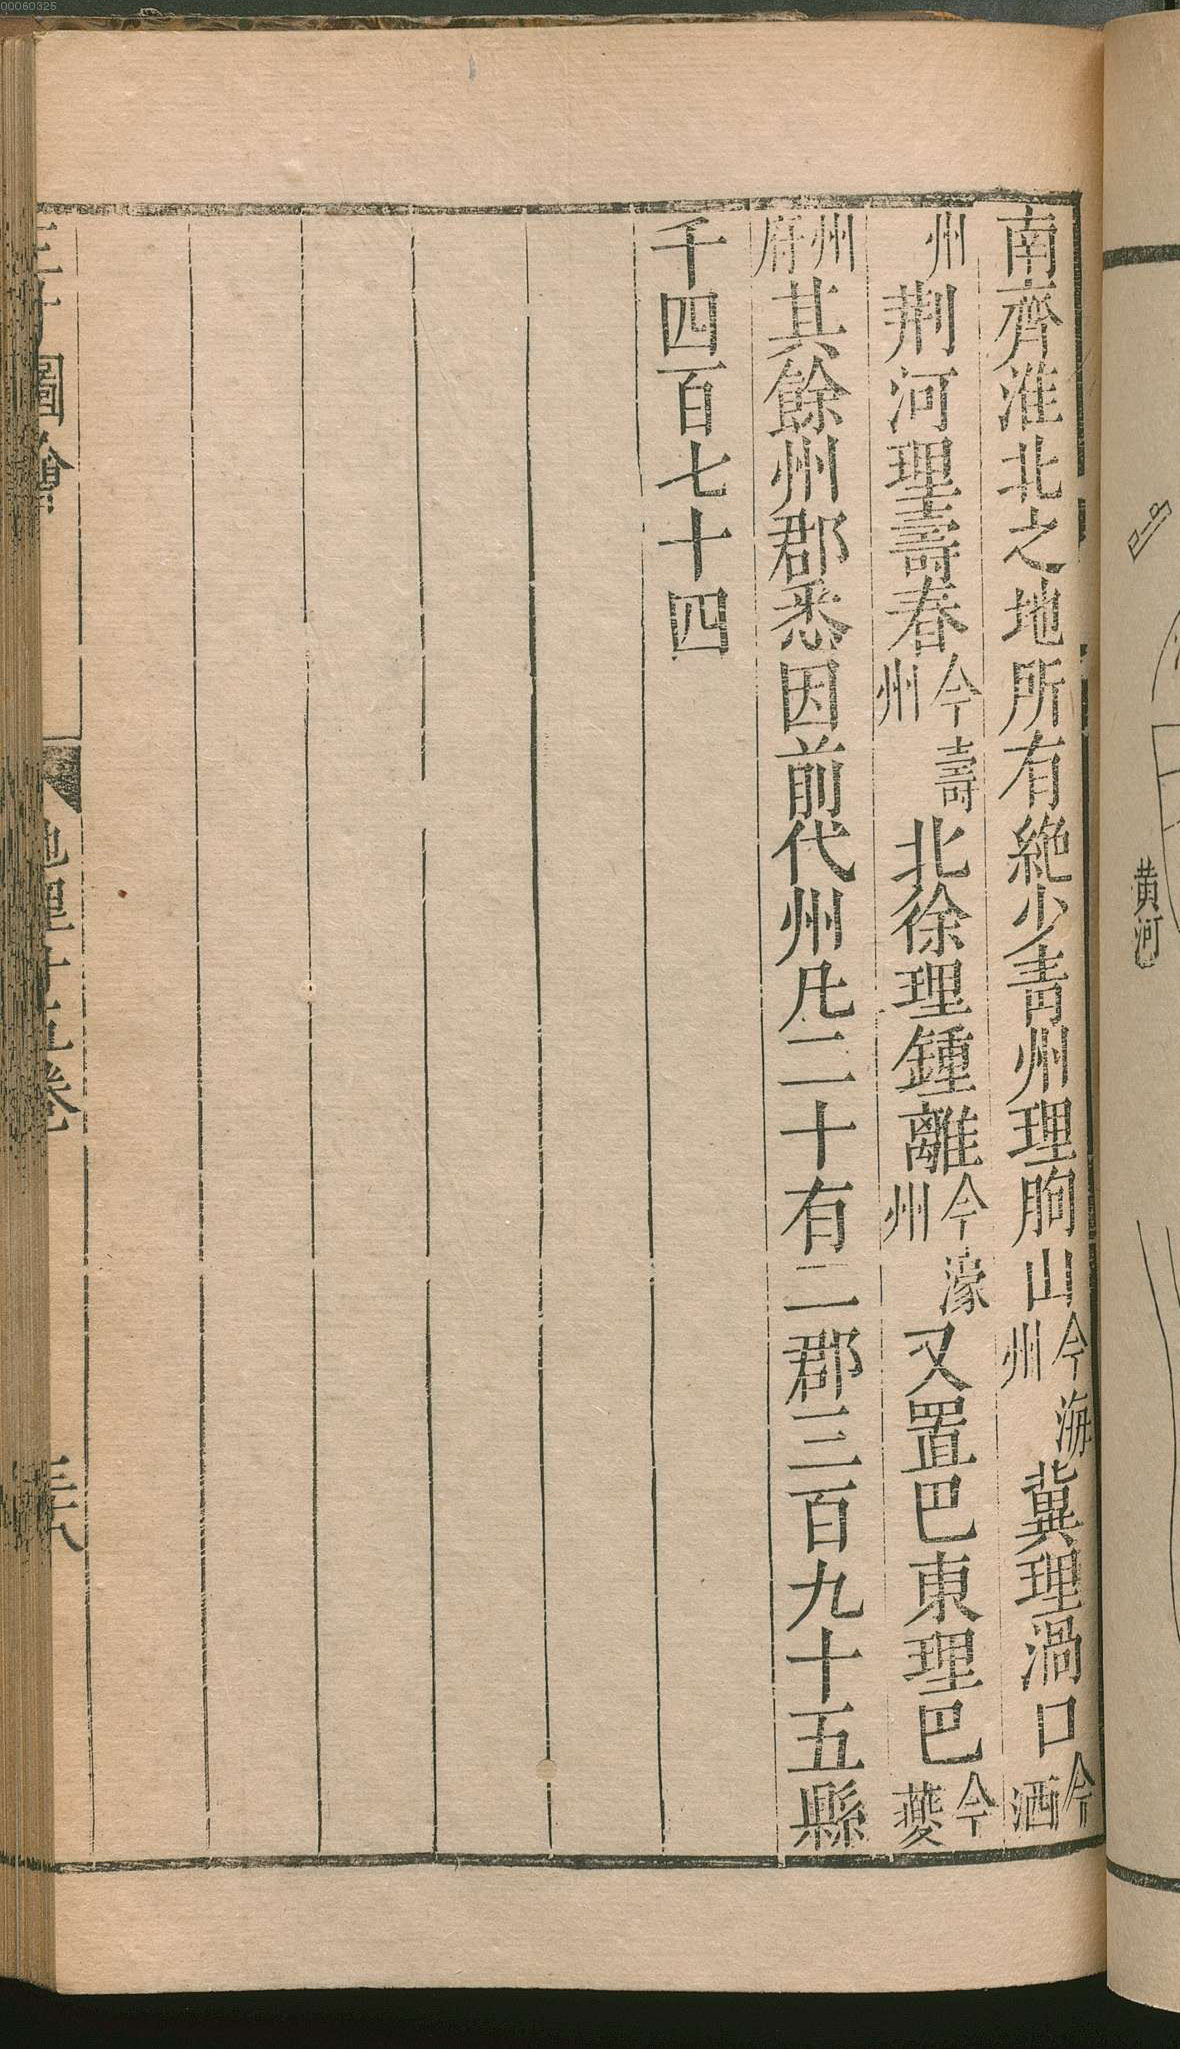 00060325
南齊淮北之地所有絶少青州理朐山今海州冀理渦口今泗
州荆河理壽春今壽州北徐理鍾離今濠州又置巴東理巴今夔
州府其餘州郡悉因前代州凡二十有二郡三百九十五縣
千四百七十四
三才圖會
地理十五卷
黄河